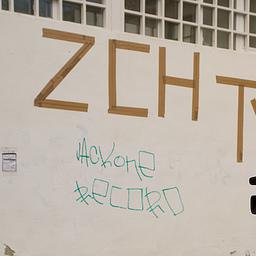 ZCHT
JACKONE
RECORD